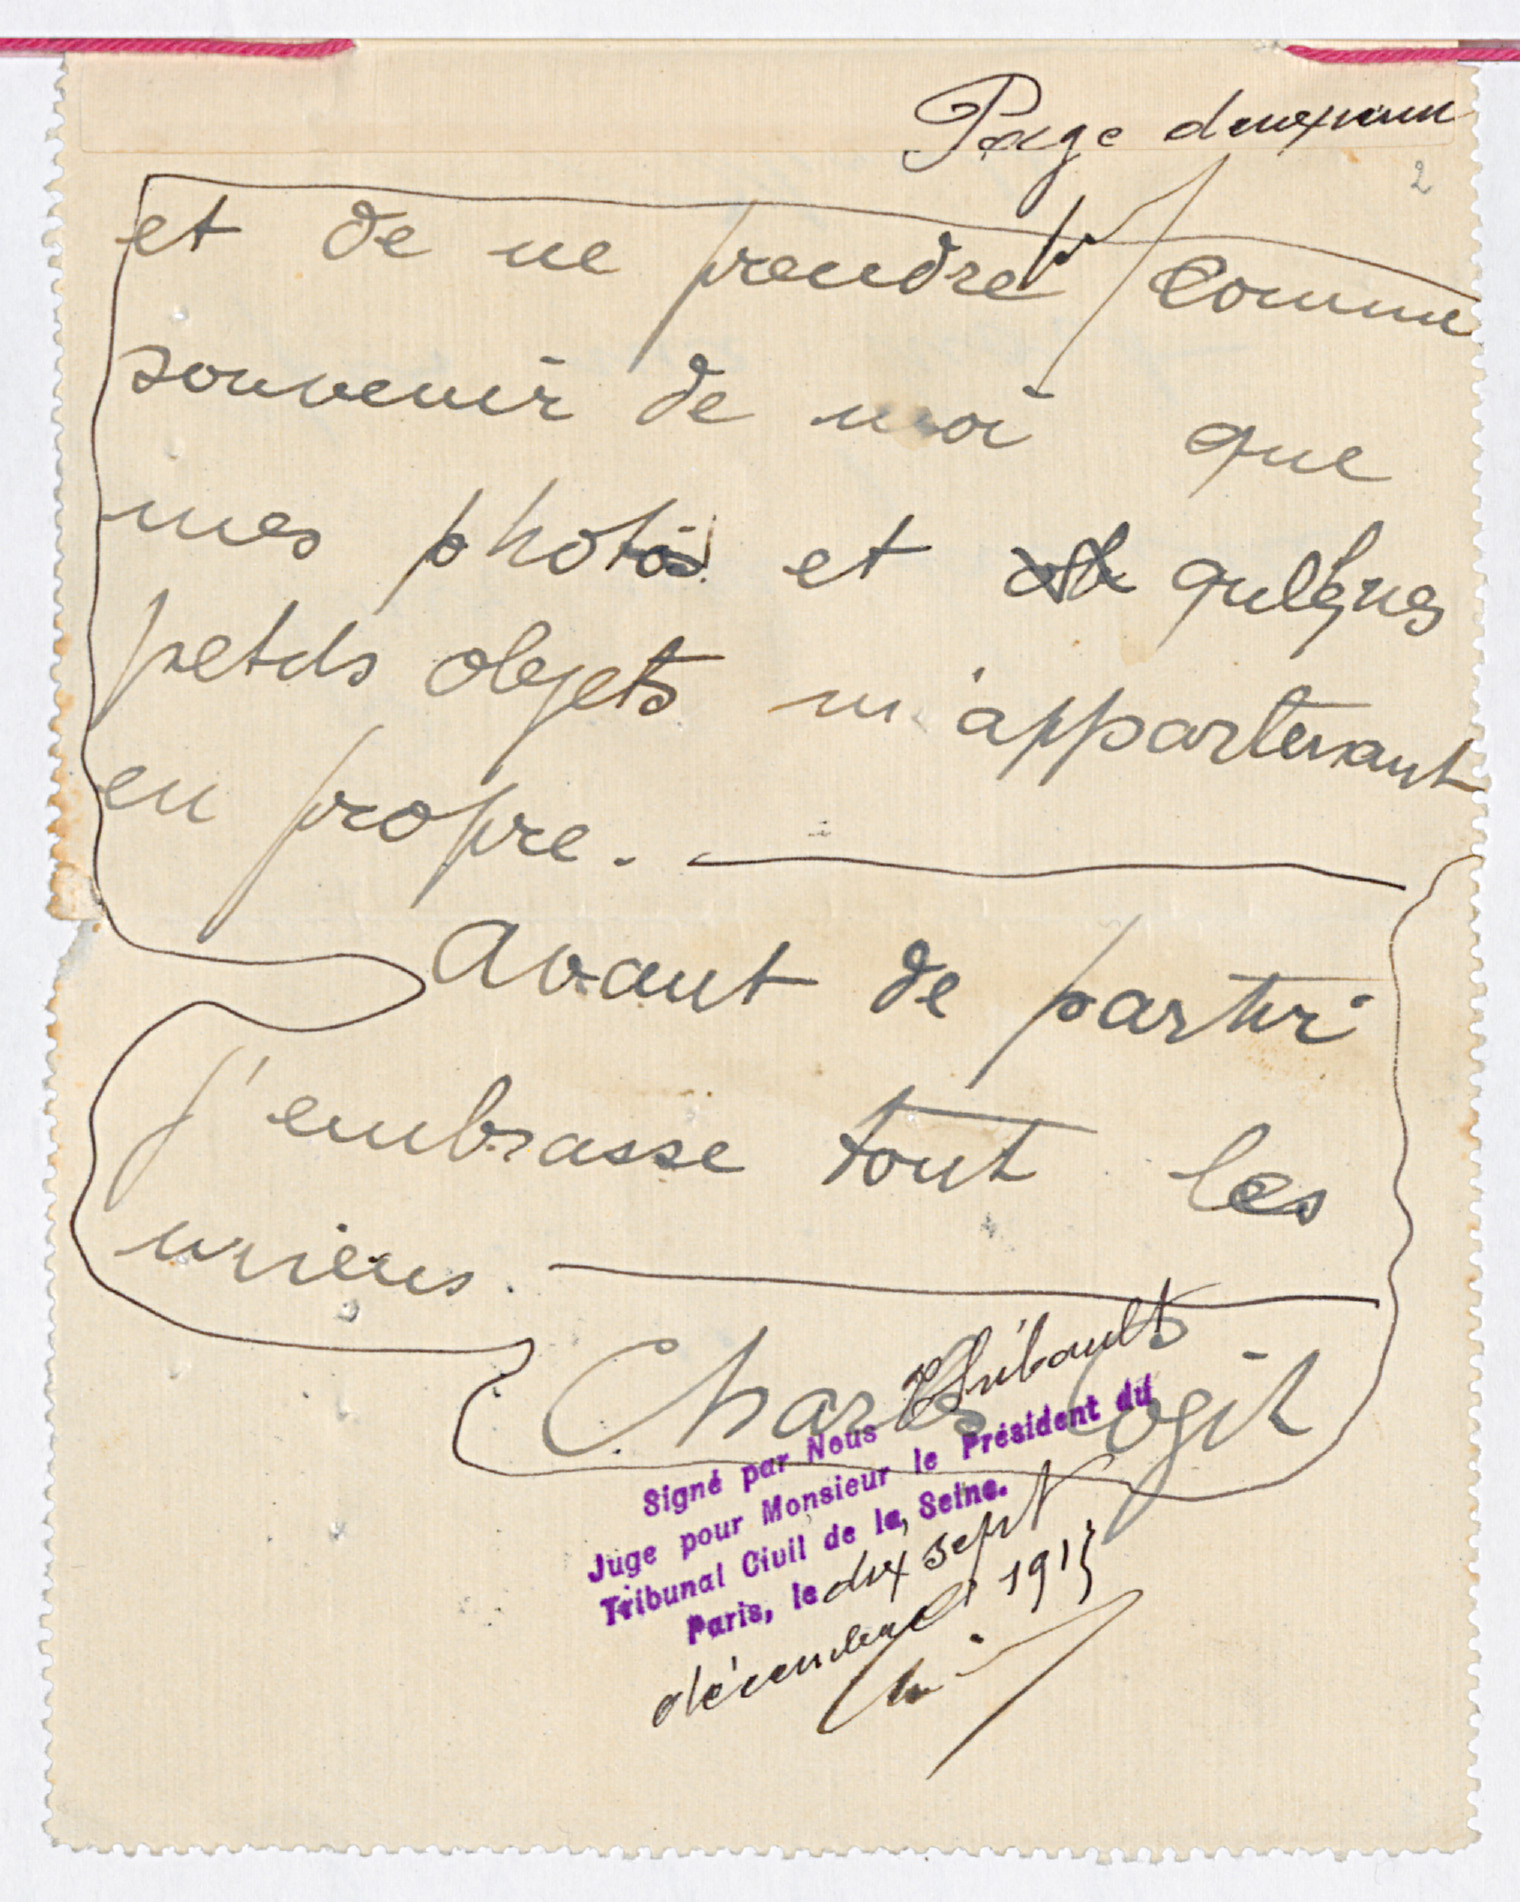 Page deuxieme
2
et de ne prendre comme
souvenir de moi que
mes photos et quelques
petits objets m'appartenant
en propre.
Avant de partir
j'embrasse tout les
miens.
Charles Cogit
Thibault
Signé par Nous
Juge pour Monsieur le Président du
Tribunal Civil de la Seine.
Paris, le dix sept
décembre 1915